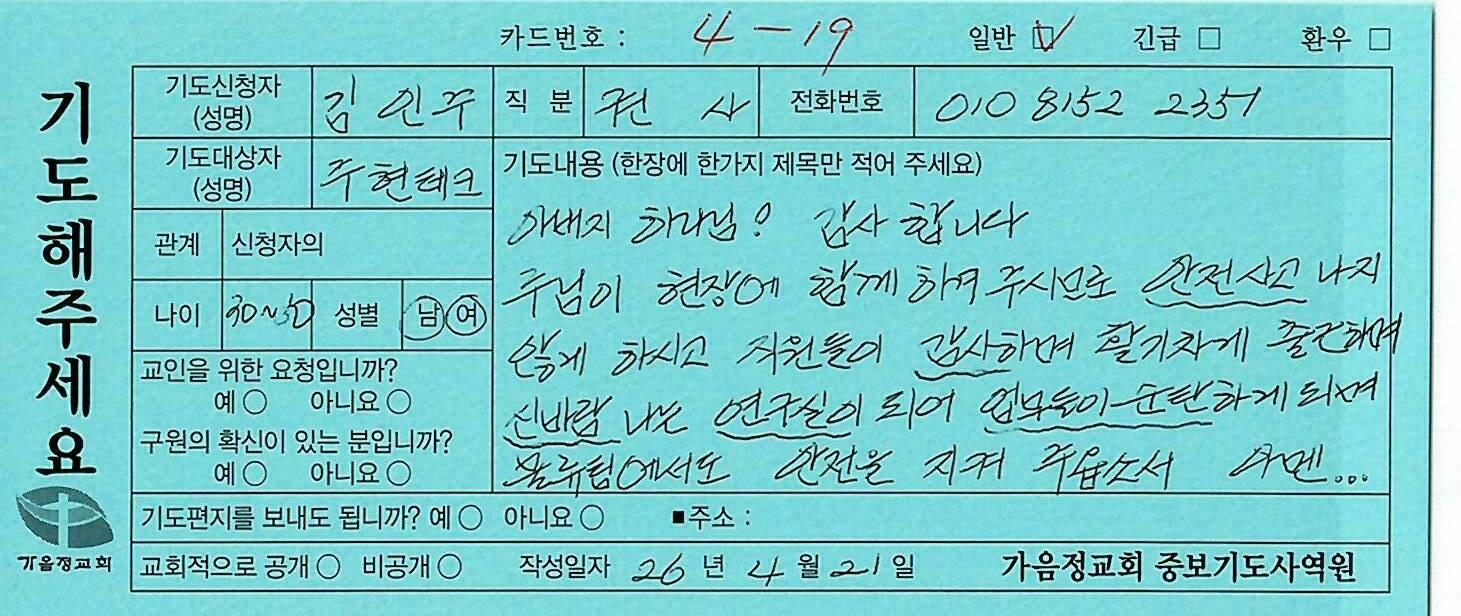 카드번호 : 4 - 19 일반 ☑ 긴급 □ 환우 □
기도해주세요
기도신청자 (성명) 김인주 직 분 권 사 전화번호 010 8152 2351
기도대상자 (성명) 주현테크
관계 신청자의
나이 30~50 성별 남 여
교인을 위한 요청입니까?
예 ○ 아니요 ○
구원의 확신이 있는 분입니까?
예 ○ 아니요 ○
기도내용 (한장에 한가지 제목만 적어 주세요)
아버지 하나님! 감사 합니다
주님이 현장에 함께 하여 주시므로 안전사고 나지
않게 하시고 직원들이 감사하며 활기차게 출근하며
신바람 나는 연구실이 되어 업무들이 순탄하게 되며
물류팀에서도 안전을 지켜 주옵소서 아멘...
기도편지를 보내도 됩니까? 예 ○ 아니요 ○ ■주소 :
가음정교회
교회적으로 공개 ○ 비공개 ○ 작성일자 26 년 4 월 21 일 가음정교회 중보기도사역원